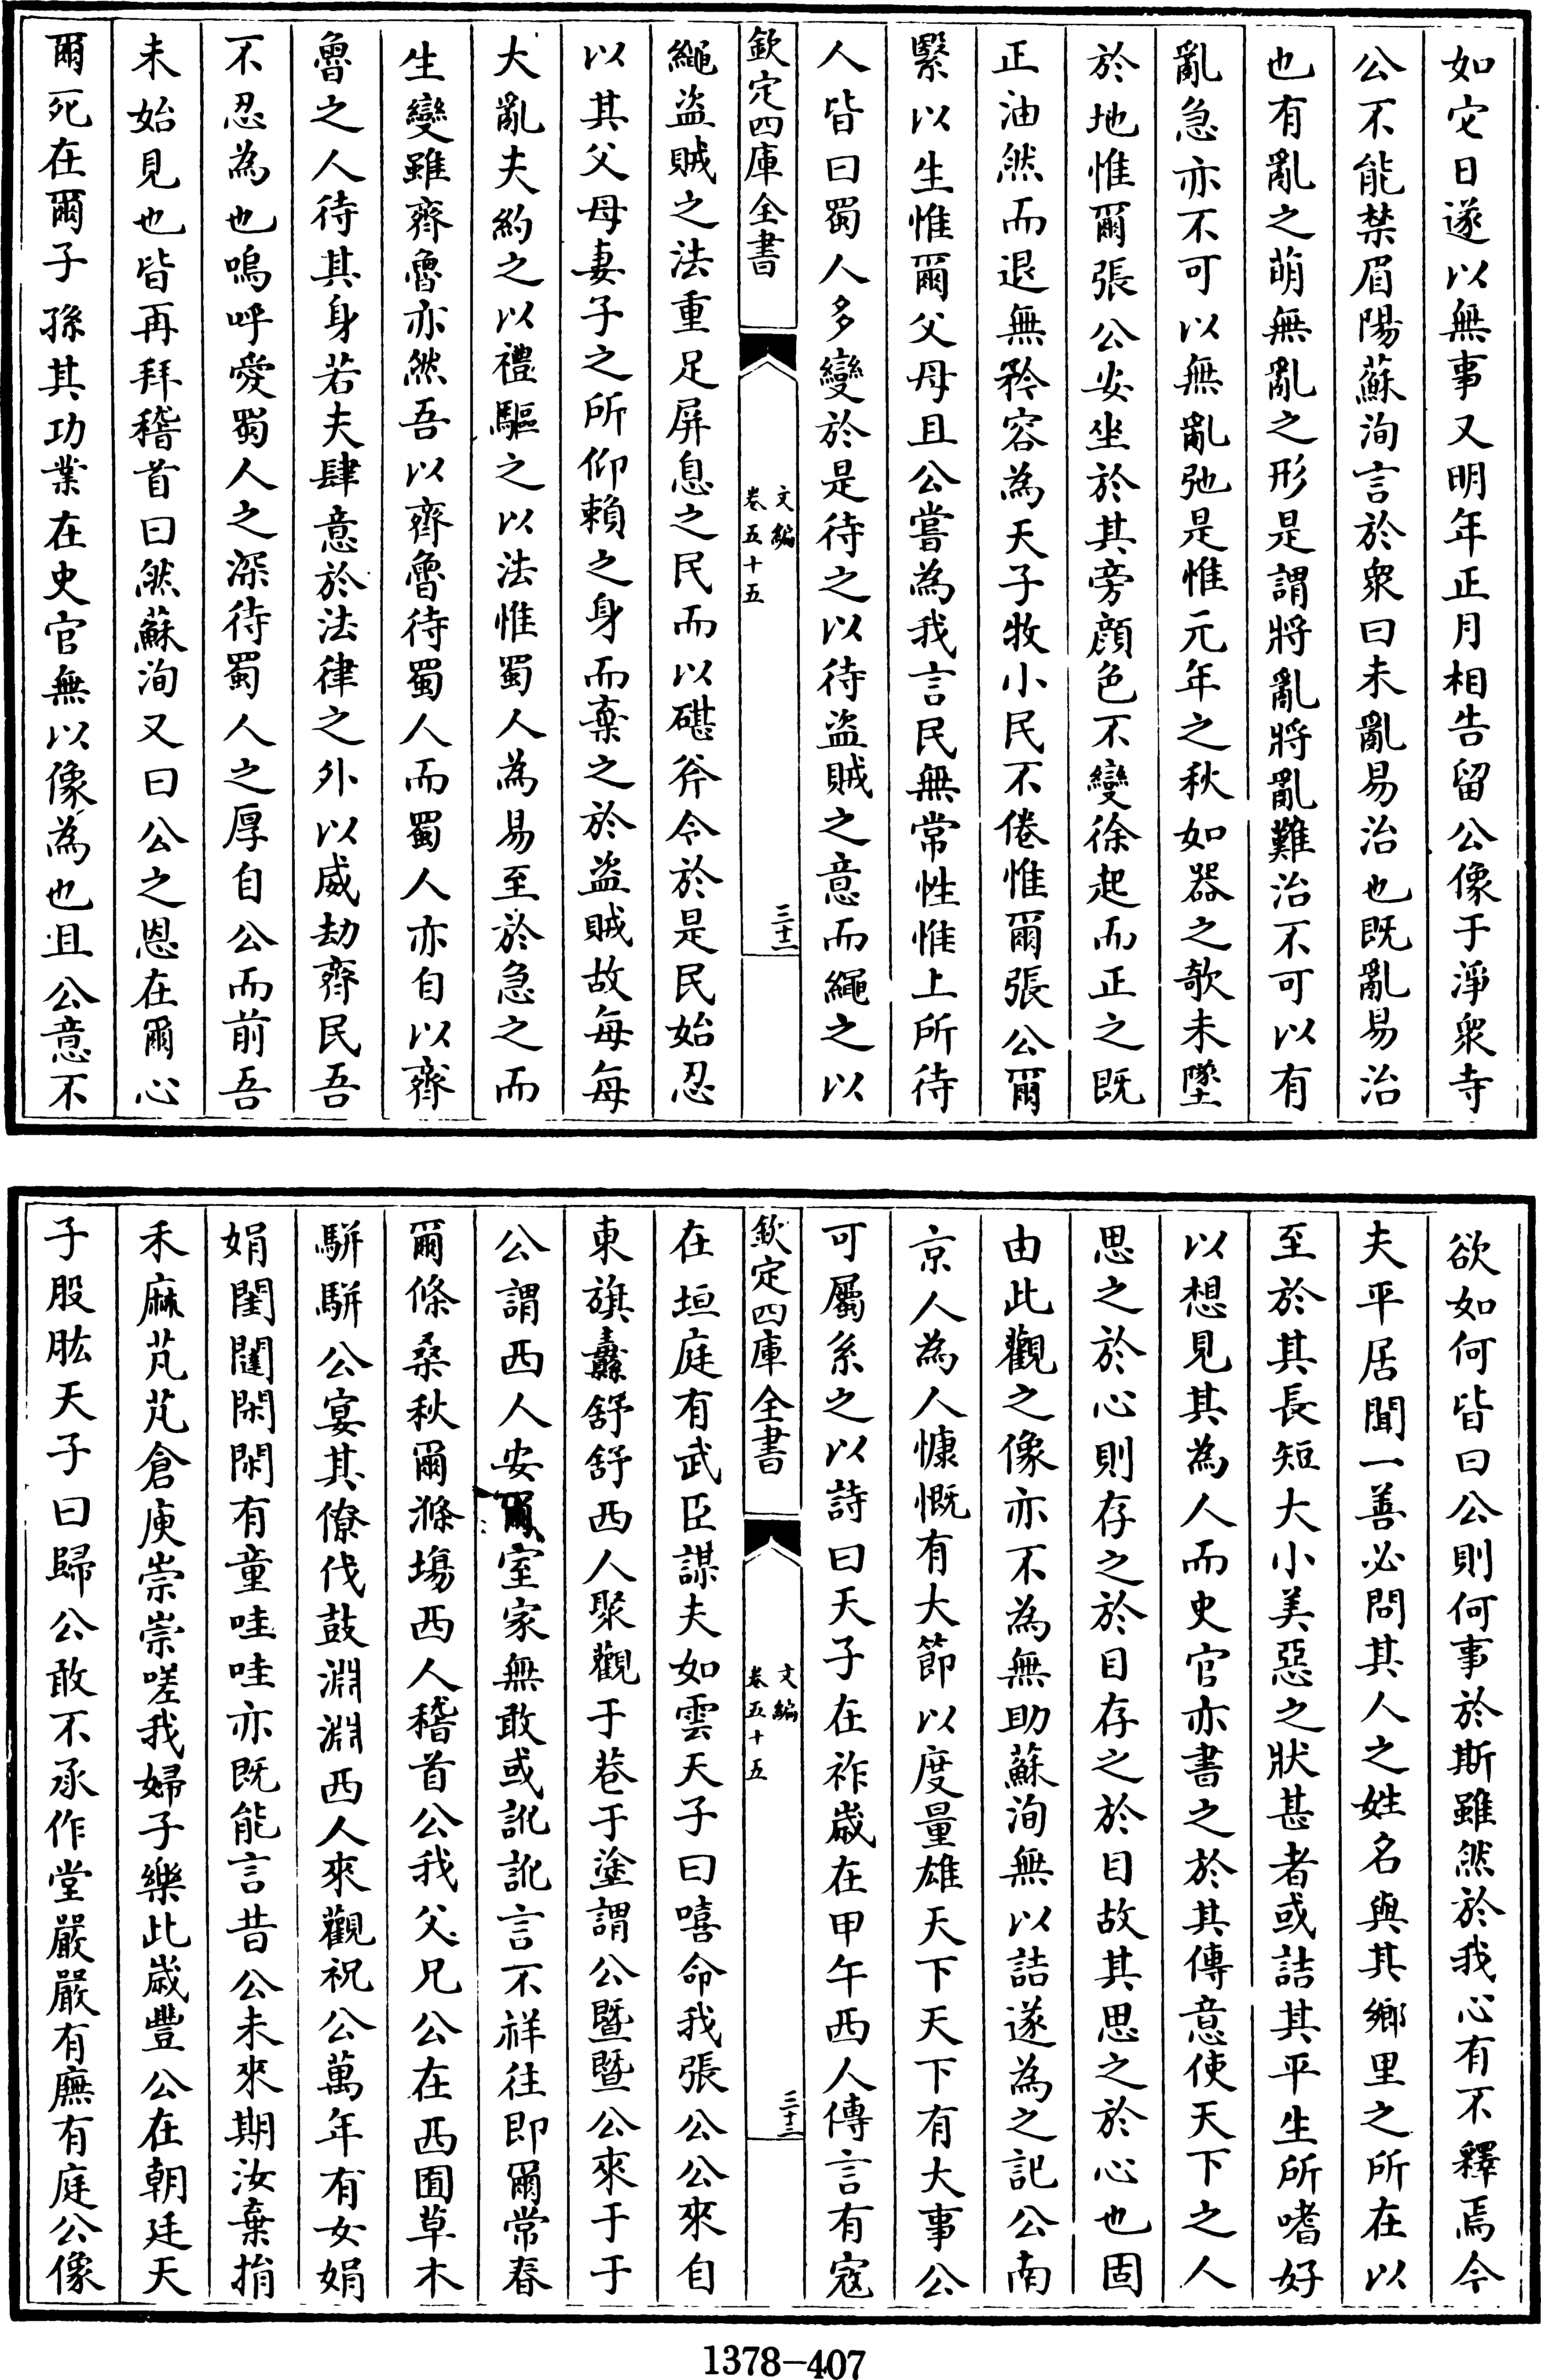 如它日遂以無事又明年正月相告留公像于淨衆寺
公不能禁眉陽蘇洵言於衆曰未亂易治也既亂易治
也有亂之萌無亂之形是謂將亂將亂難治不可以有
亂急亦不可以無亂弛是惟元年之秋如器之欹未墜
於地惟爾張公安坐於其旁顔色不變徐起而正之既
正油然而退無矜容為天子牧小民不倦惟爾張公爾
繄以生惟爾父母且公嘗為我言民無常性惟上所待
人皆曰蜀人多變於是待之以待盜賊之意而繩之以
欽定四庫全書
文編
卷五十五
三十二
繩盜賊之法重足屏息之民而以碪斧令於是民始忍
以其父母妻子之所仰賴之身而棄之於盜賊故每每
大亂夫約之以禮驅之以法惟蜀人為易至於急之而
生變雖齊魯亦然吾以齊魯待蜀人而蜀人亦自以齊
魯之人待其身若夫肆意於法律之外以威劫齊民吾
不忍為也嗚呼愛蜀人之深待蜀人之厚自公而前吾
未始見也皆再拜稽首曰然蘇洵又曰公之恩在爾心
爾死在爾子孫其功業在史官無以像為也且公意不
欲如何皆曰公則何事於斯雖然於我心有不釋焉今
夫平居聞一善必問其人之姓名與其鄉里之所在以
至於其長短大小美惡之狀甚者或詰其平生所嗜好
以想見其為人而史官亦書之於其傳意使天下之人
思之於心則存之於目存之於目故其思之於心也固
由此觀之像亦不為無助蘇洵無以詰遂為之記公南
京人為人慷慨有大節以度量雄天下天下有大事公
可屬系之以詩曰天子在祚歲在甲午西人傳言有寇
欽定四庫全書
文編
卷五十五
三十三
在垣庭有武臣謀夫如雲天子曰嘻命我張公公來自
東旗纛舒舒西人聚觀于巷于塗謂公暨暨公來于于
公謂西人安爾室家無敢或訛訛言不祥往即爾常春
爾條桑秋爾滌場西人稽首公我父兄公在西囿草木
駢駢公宴其僚伐鼓淵淵西人來觀祝公萬年有女娟
娟閨闥閑閑有童哇哇亦既能言昔公未來期汝棄捐
禾麻芃芃倉庾崇崇嗟我婦子樂此歲豐公在朝廷天
子股肱天子曰歸公敢不承作堂嚴嚴有廡有庭公像
1378-407